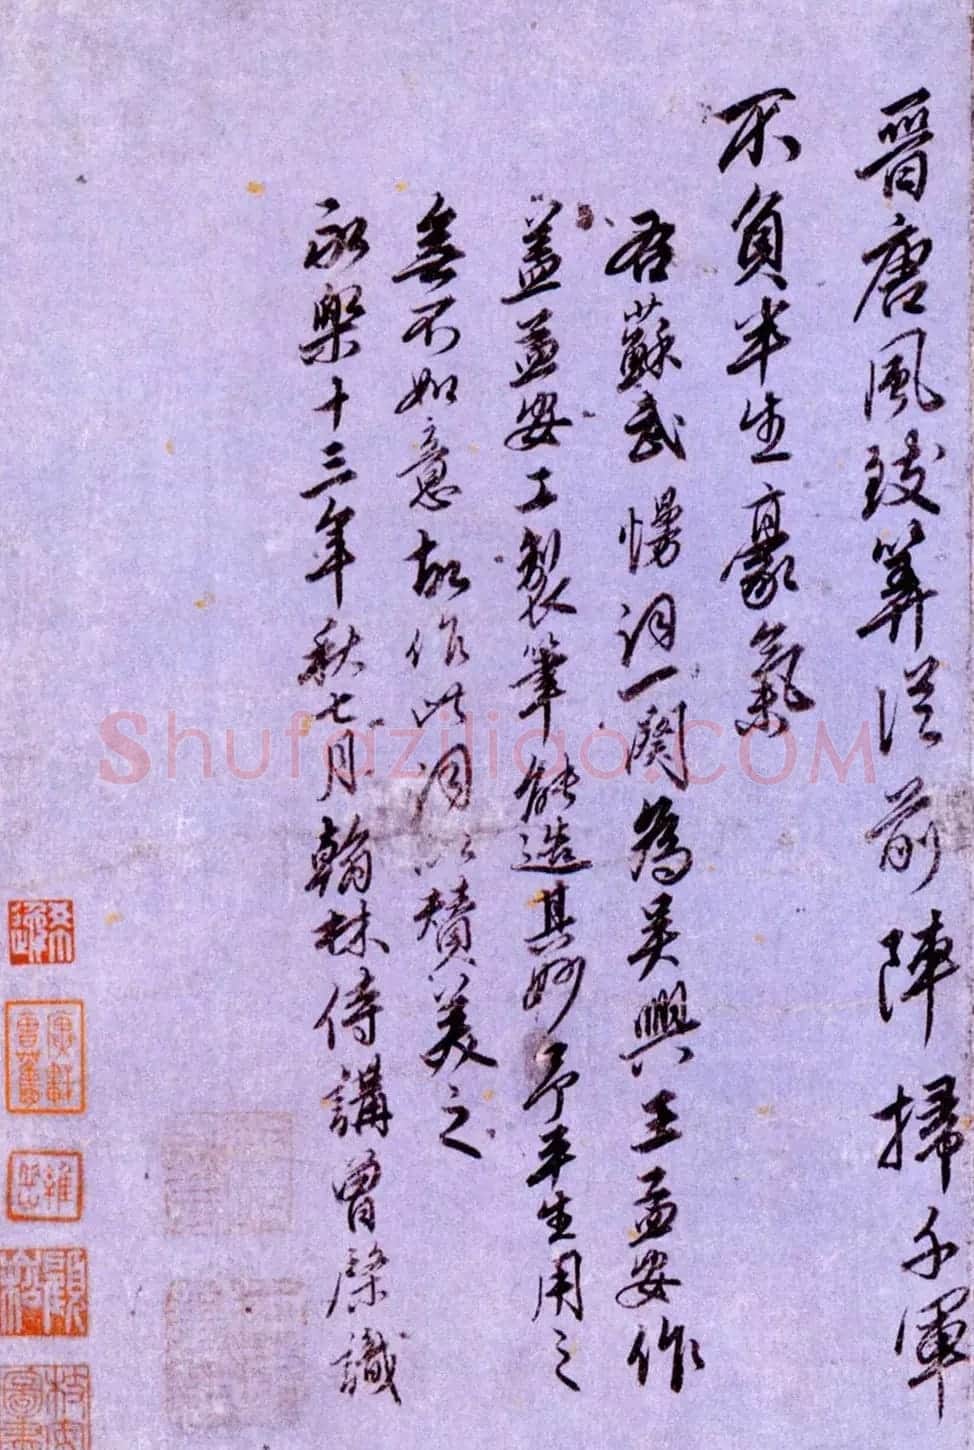 晉唐風致算從前陣掃千軍
不負半生豪氣
右蘇武慢詞一闋為吳興王孟安作
蓋孟安工製筆能造其妙予平生用之
無不如意故作此詞以贊美之
永樂十三年秋七月翰林侍講曾棨識
Shufaziliao.COM